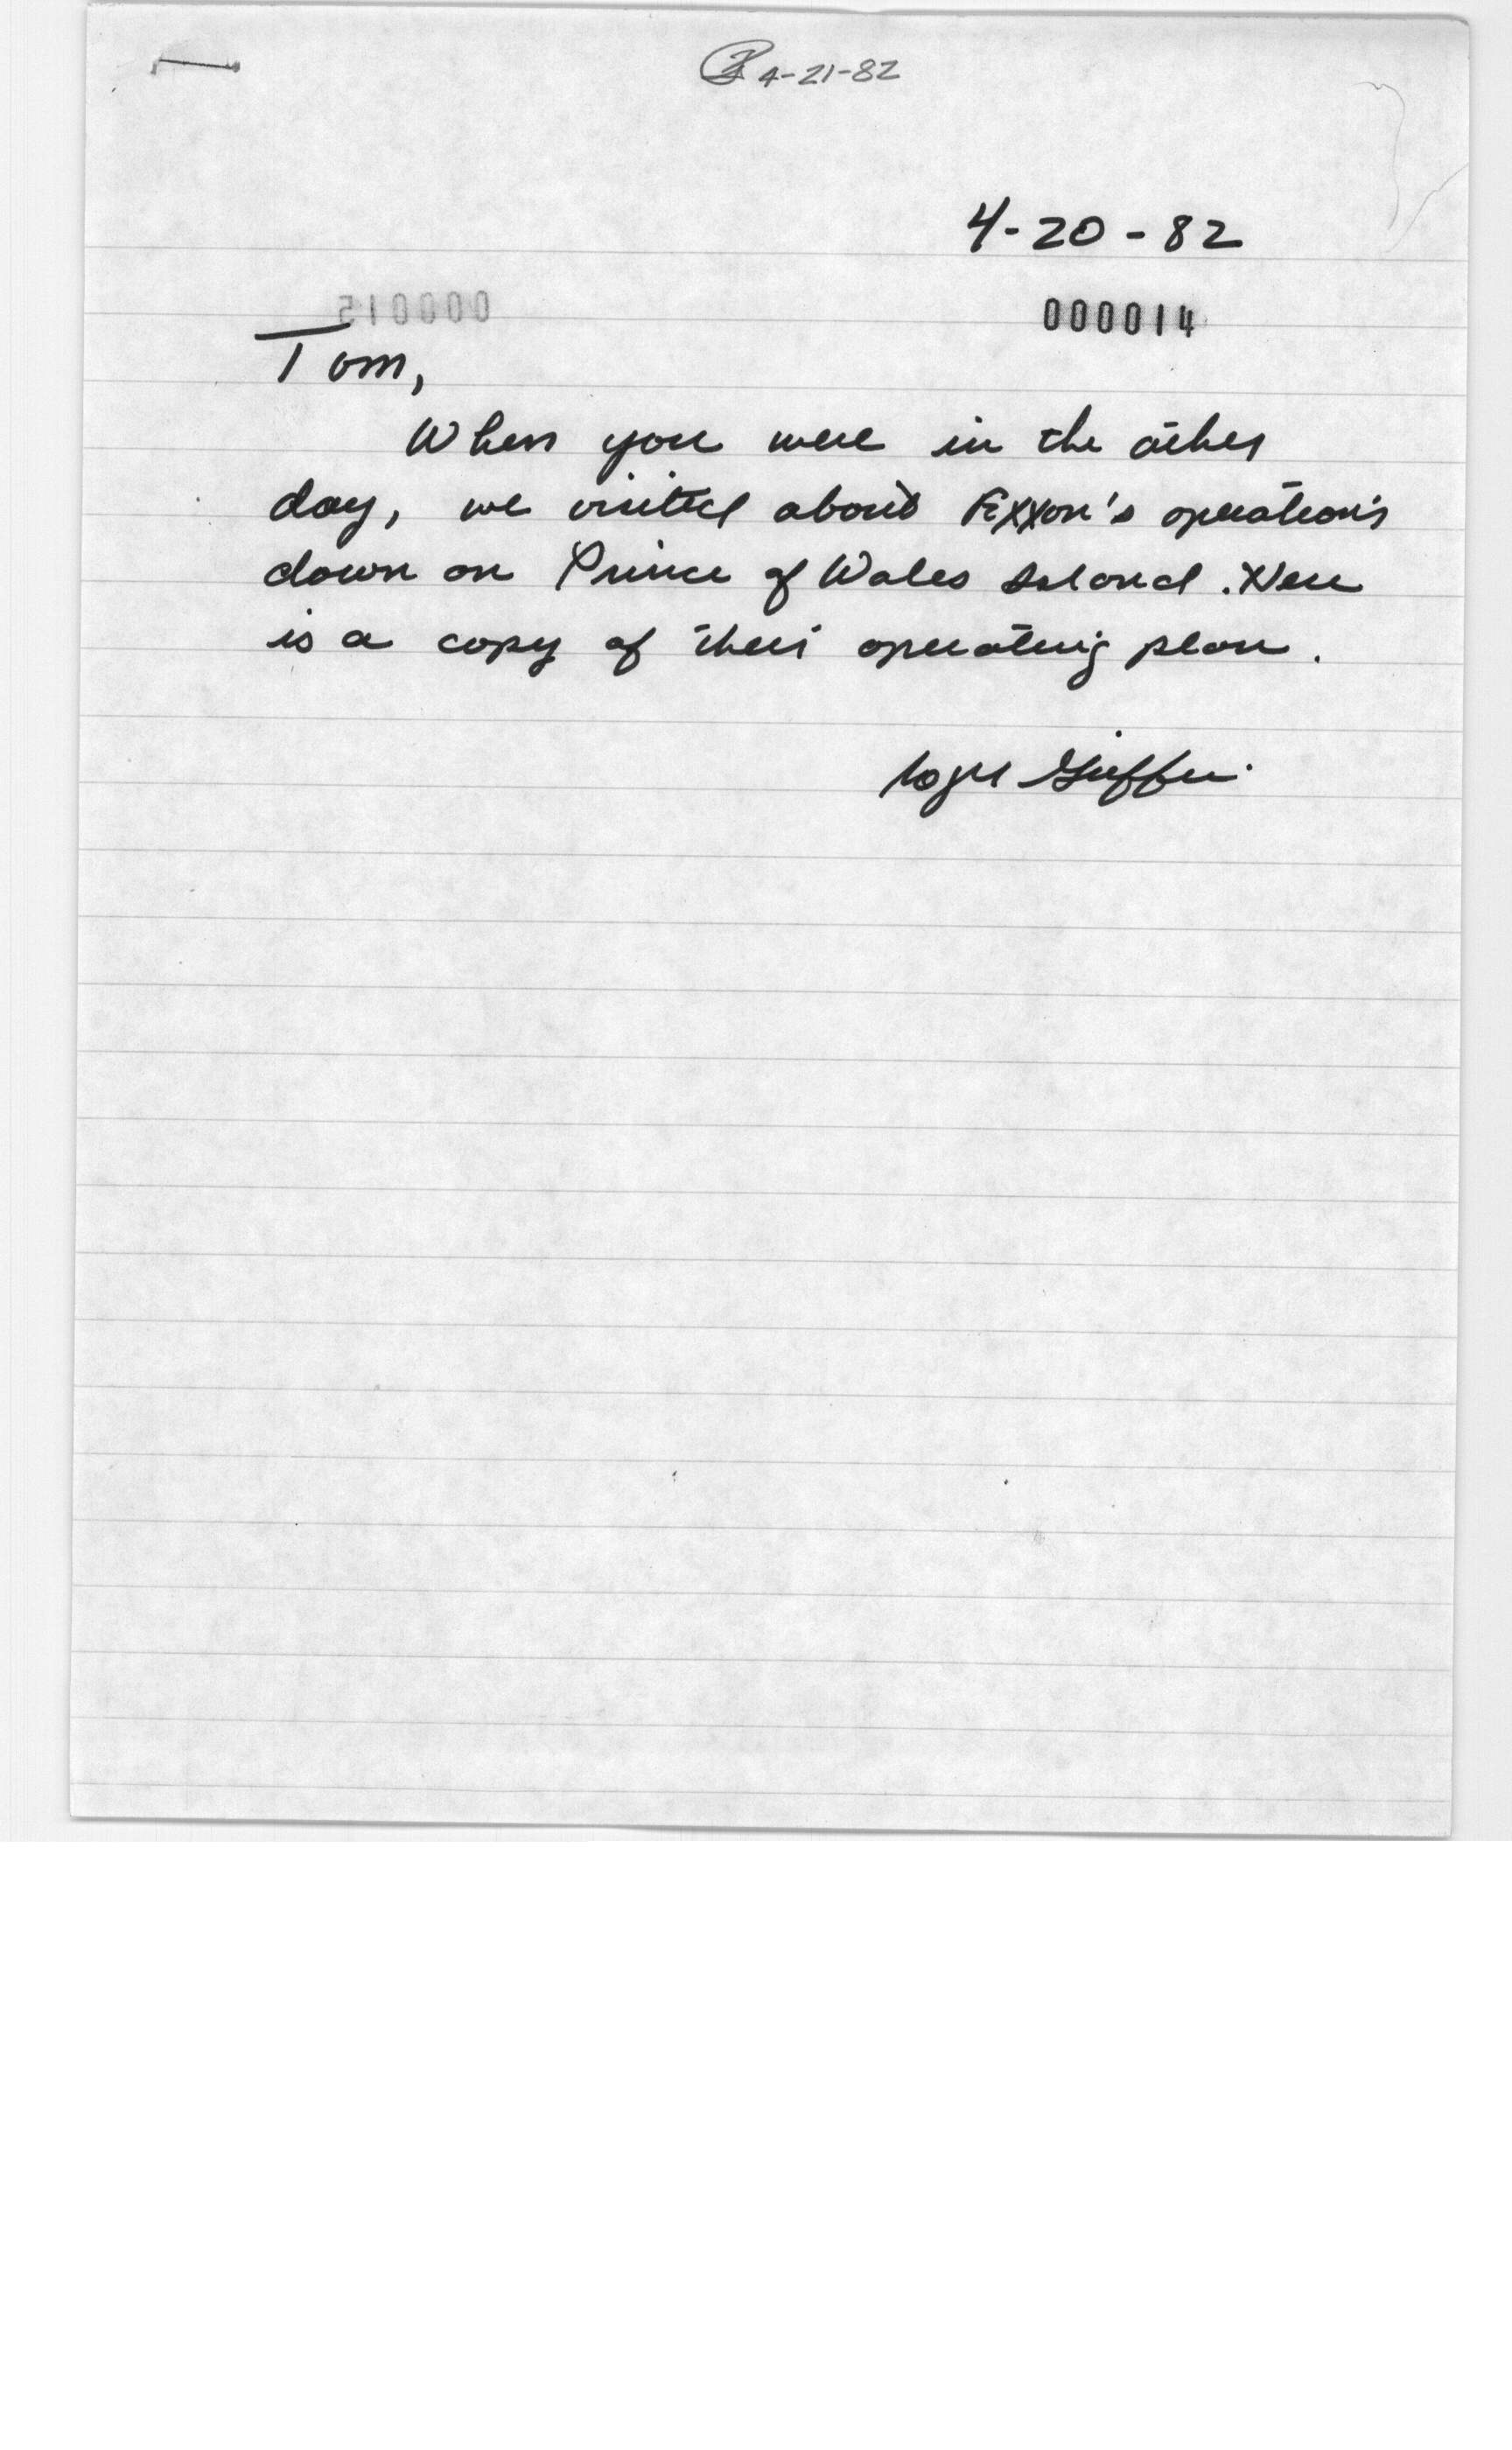 4-21-82
4-20-82
000015
000014
Tom,
When you were in the other
day, we visited about Exxon's operations
down on Prince of Wales Island. Here
is a copy of their operating plan.
Roger Griffin